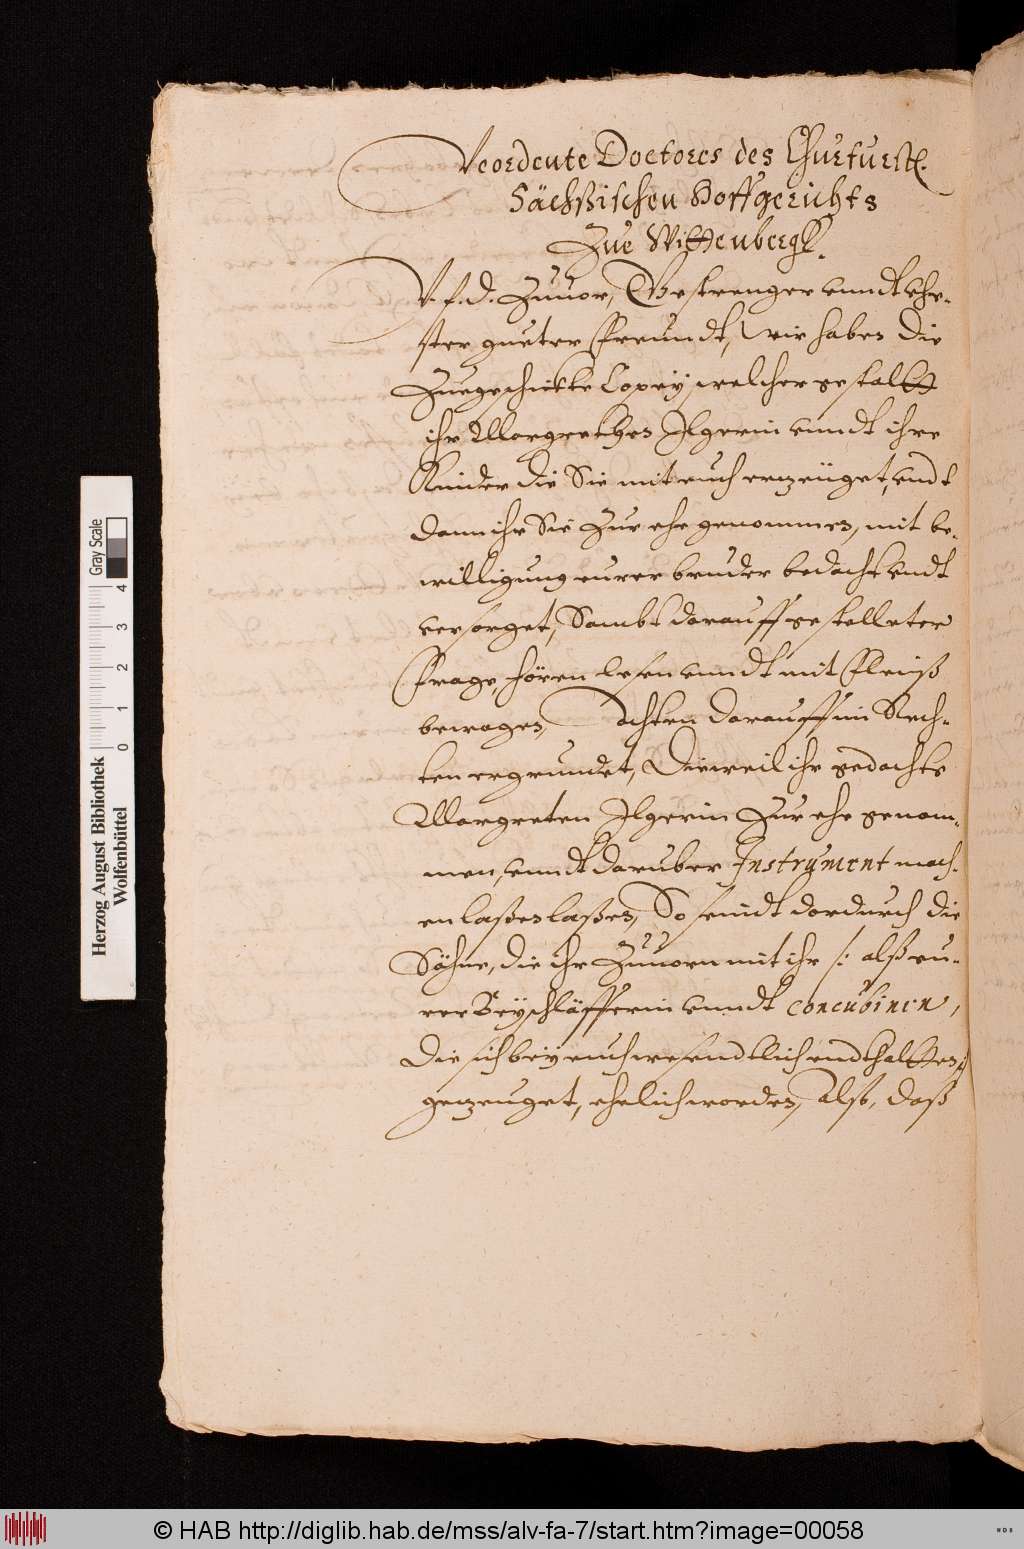 Veordente Doctores des Churfurstl.
Sächßischen Hoffgerichts
Zue Wittenbergk.
V. f. d. Zuuor, Gestrenger vnndt Ehr-
ster gueter Freundt, Wir haben die
Zuegeschickte Copey, welcher gestallt
ihr Margrethen Ilgerin vnndt ihre
Kinder die Sie mit euch erzeüget, vndt
dann ihr Sie Zur ehe genommen, mit be-
willigung eurer bruder bedacht vndt
versorget, Sambt darauff gestelleter
Frage, hören lesen vnndt mit Fleiß
bewogen, Achten darauff im Rech-
ten ergrundet, Dieweil ihr gedachte
Margreten Ilgerin Zur ehe genom-
men, vnndt daruber Instrument mach-
en laßen laßen, So seindt dardurch die
Söhne, die ihr Zuuorn mit ihr /: alß eu-
rer Beyschläfferin vnndt Concubinen,
die sich bey euch wesendtlich endthalten :/
gezeuget, ehelich worden, Also, daß
Gray Scale
0 1 2 3 4
Herzog August Bibliothek
Wolfenbüttel
© HAB http://diglib.hab.de/mss/alv-fa-7/start.htm?image=00058